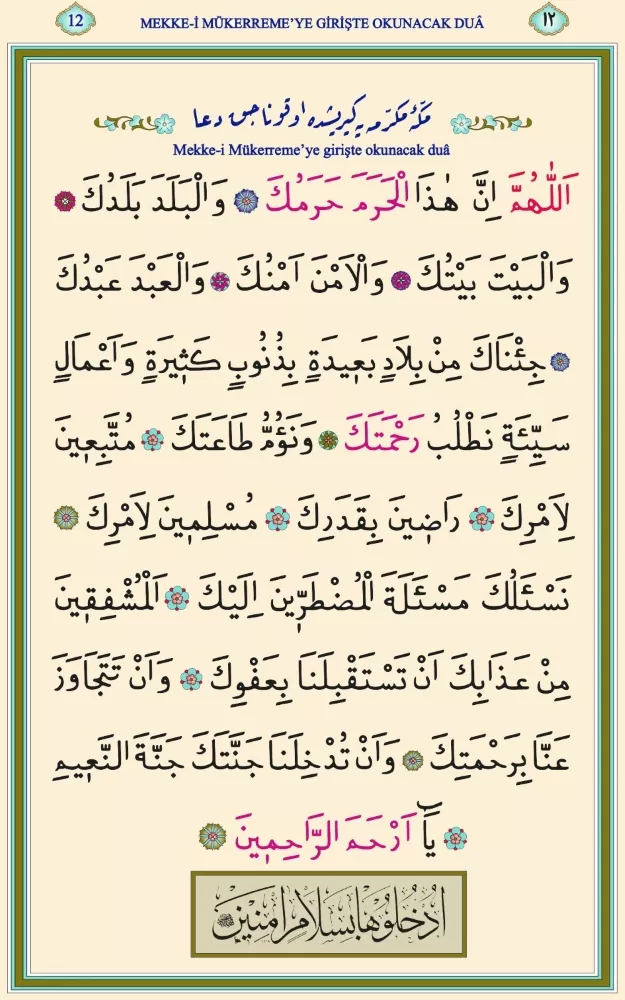 12
MEKKE-İ MÜKERREME’YE GİRİŞTE OKUNACAK DUÂ
١٢
مكّۀ مكرّمه يه كيريشده اوقوناجق دعا
Mekke-i Mükerreme’ye girişte okunacak duâ
اَللّٰهُمَّ اِنَّ هٰذَا الْحَرَمَ حَرَمُكَ وَالْبَلَدَ بَلَدُكَ
وَالْبَيْتَ بَيْتُكَ وَالْاَمْنَ اَمْنُكَ وَالْعَبْدَ عَبْدُكَ
جِئْنَاكَ مِنْ بِلَادٍ بَعِيدَةٍ بِذُنُوبٍ كَثِيرَةٍ وَاَعْمَالٍ
سَيِّئَةٍ نَطْلُبُ رَحْمَتَكَ وَنَؤُمُّ طَاعَتَكَ مُتَّبِعِينَ
لِاَمْرِكَ رَاضِينَ بِقَدَرِكَ مُسْلِمِينَ لِاَمْرِكَ
نَسْئَلُكَ مَسْئَلَةَ الْمُضْطَرِّينَ اِلَيْكَ اَلْمُشْفِقِينَ
مِنْ عَذَابِكَ اَنْ تَسْتَقْبِلَنَا بِعَفْوِكَ وَاَنْ تَتَجَاوَزَ
عَنَّا بِرَحْمَتِكَ وَاَنْ تُدْخِلَنَا جَنَّتَكَ جَنَّةَ النَّعِيمِ
يَٓا اَرْحَمَ الرَّاحِمِينَ
اُدْخُلُوهَا بِسَلَامٍ اٰمِنِينَ